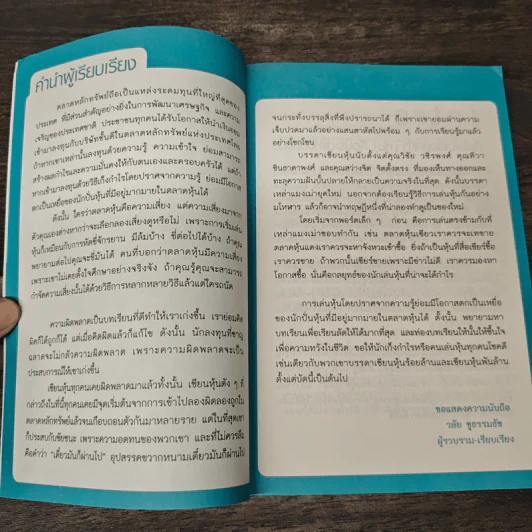 คำนำผู้เรียบเรียง
ตลาดหลักทรัพย์ถือเป็นแหล่งระดมทุนที่ใหญ่ที่สุดของ
ประเทศ ที่มีส่วนสำคัญอย่างยิ่งในการพัฒนาเศรษฐกิจ และความ
เจริญของประเทศชาติ ประชาชนทุกคนได้รับโอกาสให้นำเงินออม
เข้ามาลงทุนกับบริษัทชั้นดีในตลาดหลักทรัพย์แห่งประเทศไทย
ถ้าหากเขาเหล่านั้นลงทุนด้วยความรู้ ความเข้าใจ ย่อมสามารถ
สร้างผลกำไรและความมั่นคงให้กับตนเองและครอบครัวได้ แต่ถ้า
หากเข้ามาลงทุนด้วยวิธีเก็งกำไรโดยปราศจากความรู้ ย่อมมีโอกาส
ตกเป็นเหยื่อของนักปั่นหุ้นที่มีอยู่มากมายในตลาดหุ้นได้
ดังนั้น ใครว่าตลาดหุ้นคือความเสี่ยง แต่ความเสี่ยงมาจาก
ตัวคุณเองต่างหากว่าจะเลือกลองเสี่ยงดูหรือไม่ เพราะการเริ่มเล่น
หุ้นก็เหมือนกับการหัดขี่จักรยาน มีล้มบ้าง ขี่ต่อไปได้บ้าง ถ้าคุณ
พยายามต่อไปคุณจะขี่มันได้ คนที่บอกว่าตลาดหุ้นมีความเสี่ยง
เพราะเขาไม่เคยตั้งใจศึกษาอย่างจริงจัง ถ้าคุณรู้คุณจะสามารถ
กำจัดความเสี่ยงนั้นได้ด้วยวิธีการหลากหลายวิธีแล้วแต่ใครถนัด
ความผิดพลาดเป็นบทเรียนที่ดีทำให้เราเก่งขึ้น เราย่อมคิด
ผิดก็ได้ถูกก็ได้ แต่เมื่อคิดผิดแล้วก็แก้ไข ดังนั้น นักลงทุนที่ชาญ
ฉลาดจะไม่กลัวความผิดพลาด เพราะความผิดพลาดจะเป็น
ประสบการณ์ให้เขาเก่งขึ้น
เซียนหุ้นทุกคนเคยผิดพลาดมาแล้วทั้งนั้น เซียนหุ้นดัง ๆ ที่
กล่าวถึงในที่นี้ทุกคนเคยมีจุดเริ่มต้นจากการเข้าไปลองผิดลองถูกใน
ตลาดหลักทรัพย์แล้วจนเกือบถอนตัวกันมาหลายราย แต่ในที่สุดเขา
ก็ประสบกับชัยชนะ เพราะความอดทนของพวกเขา และที่ไม่ควรลืม
คือคำว่า "เดี๋ยวมันก็ผ่านไป" อุปสรรคขวากหนามเดี๋ยวมันก็ผ่านไป
จนกระทั่งบรรลุสิ่งที่พึงปรารถนาได้ ก็เพราะเขายอมผ่านความ
เจ็บปวดมาแล้วอย่างแสนสาหัสไปพร้อม ๆ กับการเรียนรู้มาแล้ว
อย่างโชกโชน
บรรดาเซียนหุ้นนับตั้งแต่คุณวิชัย วชิรพงศ์ คุณทิวา
ชินธาดาพงศ์ และคุณสว่างจิต จิตต์ตรง ที่มองเห็นทางออกและ
ทะลุความฝันปั้นปลายให้กลายเป็นความจริงในที่สุด ดังนั้นบรรดา
เหล่าแมงเม่ายุคใหม่ นอกจากต้องเรียนรู้วิธีการเล่นหุ้นกันอย่าง
มโหฬาร แล้วก็อาจนำทฤษฎีหนึ่งที่น่าลองทำดูเป็นของใหม่
โดยเริ่มจากพอร์ตเล็ก ๆ ก่อน คือการเล่นตรงข้ามกับที่
เหล่าแมงเม่าชอบทำกัน เช่น ตลาดหุ้นเขียวเราควรจะเทขาย
ตลาดหุ้นแดงเราควรจะหาจังหวะเข้าซื้อ ยิ่งถ้าเป็นหุ้นที่สื่อเชียร์ซื้อ
เราควรขาย ถ้าเป็นหุ้นที่เชียร์ขายเพราะมีข่าวไม่ดี เราควรมองหา
โอกาสซื้อ นั่นคือกลยุทธ์ของนักเล่นหุ้นที่น่าจะได้กำไร
การเล่นหุ้นโดยปราศจากความรู้ย่อมมีโอกาสตกเป็นเหยื่อ
ของนักปั่นหุ้นที่มีอยู่มากมายในตลาดหุ้นได้ ดังนั้น พยายามหา
บทเรียนเพื่อเรียนลัดให้ได้มากที่สุด และท่องบทเรียนให้นั้นให้ขึ้นใจ
เพื่อความหวังในชีวิต ขอให้นักเก็งกำไรหรือคนเล่นหุ้นทุกคนโชคดี
เช่นเดียวกับพวกเขาบรรดาเซียนหุ้นร้อยล้านและเซียนหุ้นพันล้าน
ตั้งแต่บัดนี้เป็นต้นไป
ขอแสดงความนับถือ
วลัย ชูธรรมธัช
ผู้รวบรวม-เรียบเรียง